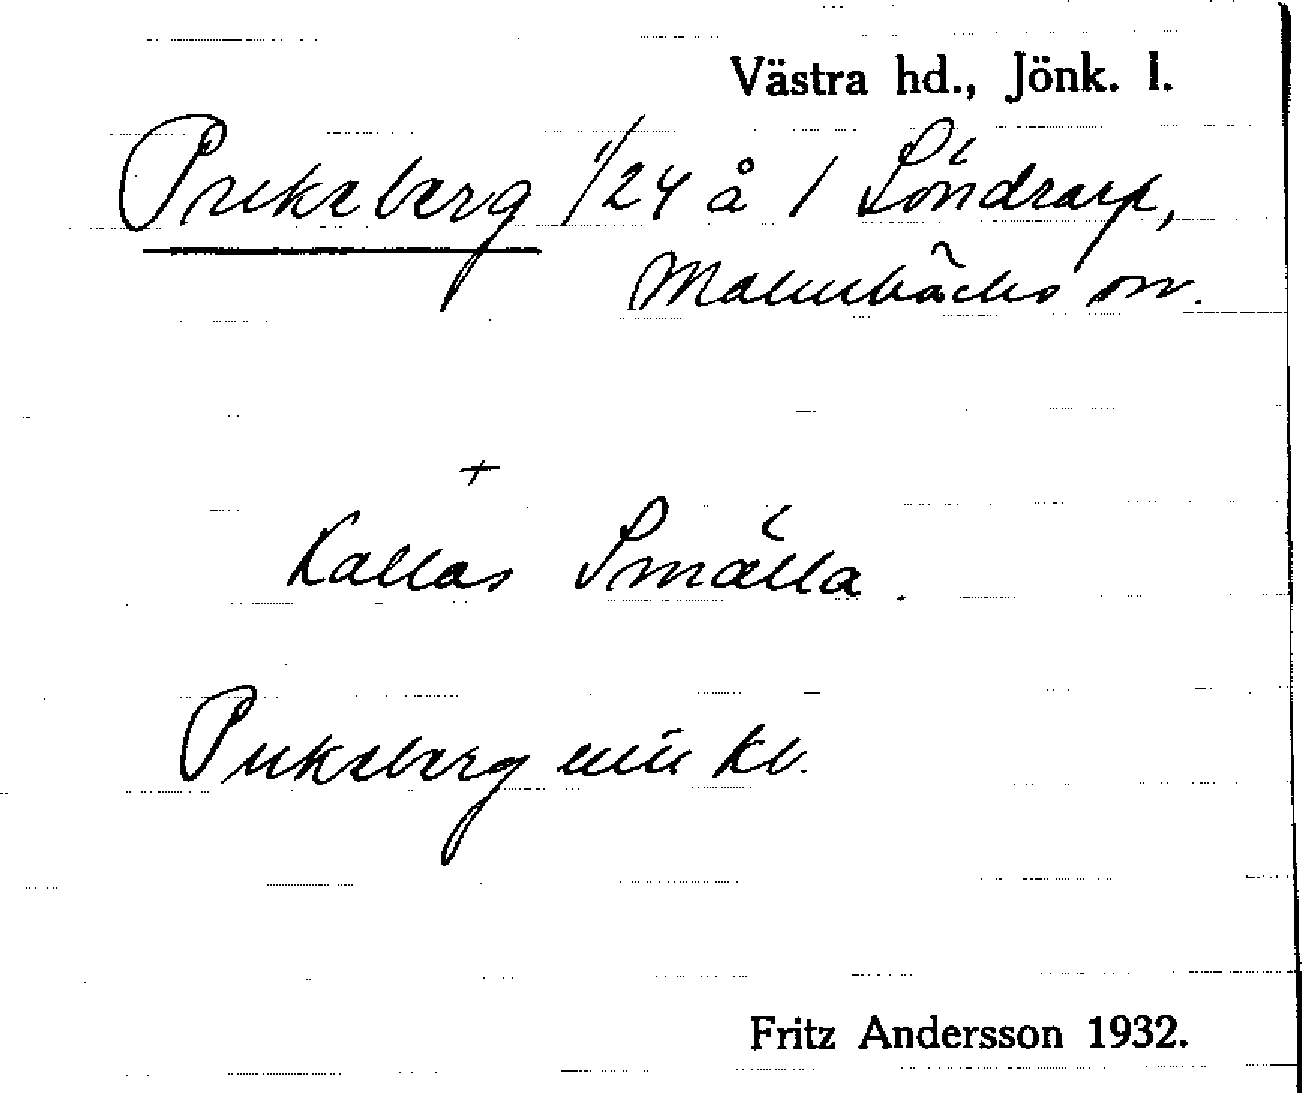 Västra hd., Jönk. l.
Pukaberg 1/24 å 1 Söndrarp,
Malmbäcks sn.
+
Kallas Smälla.
Pukaberg kb.
Fritz Andersson 1932.